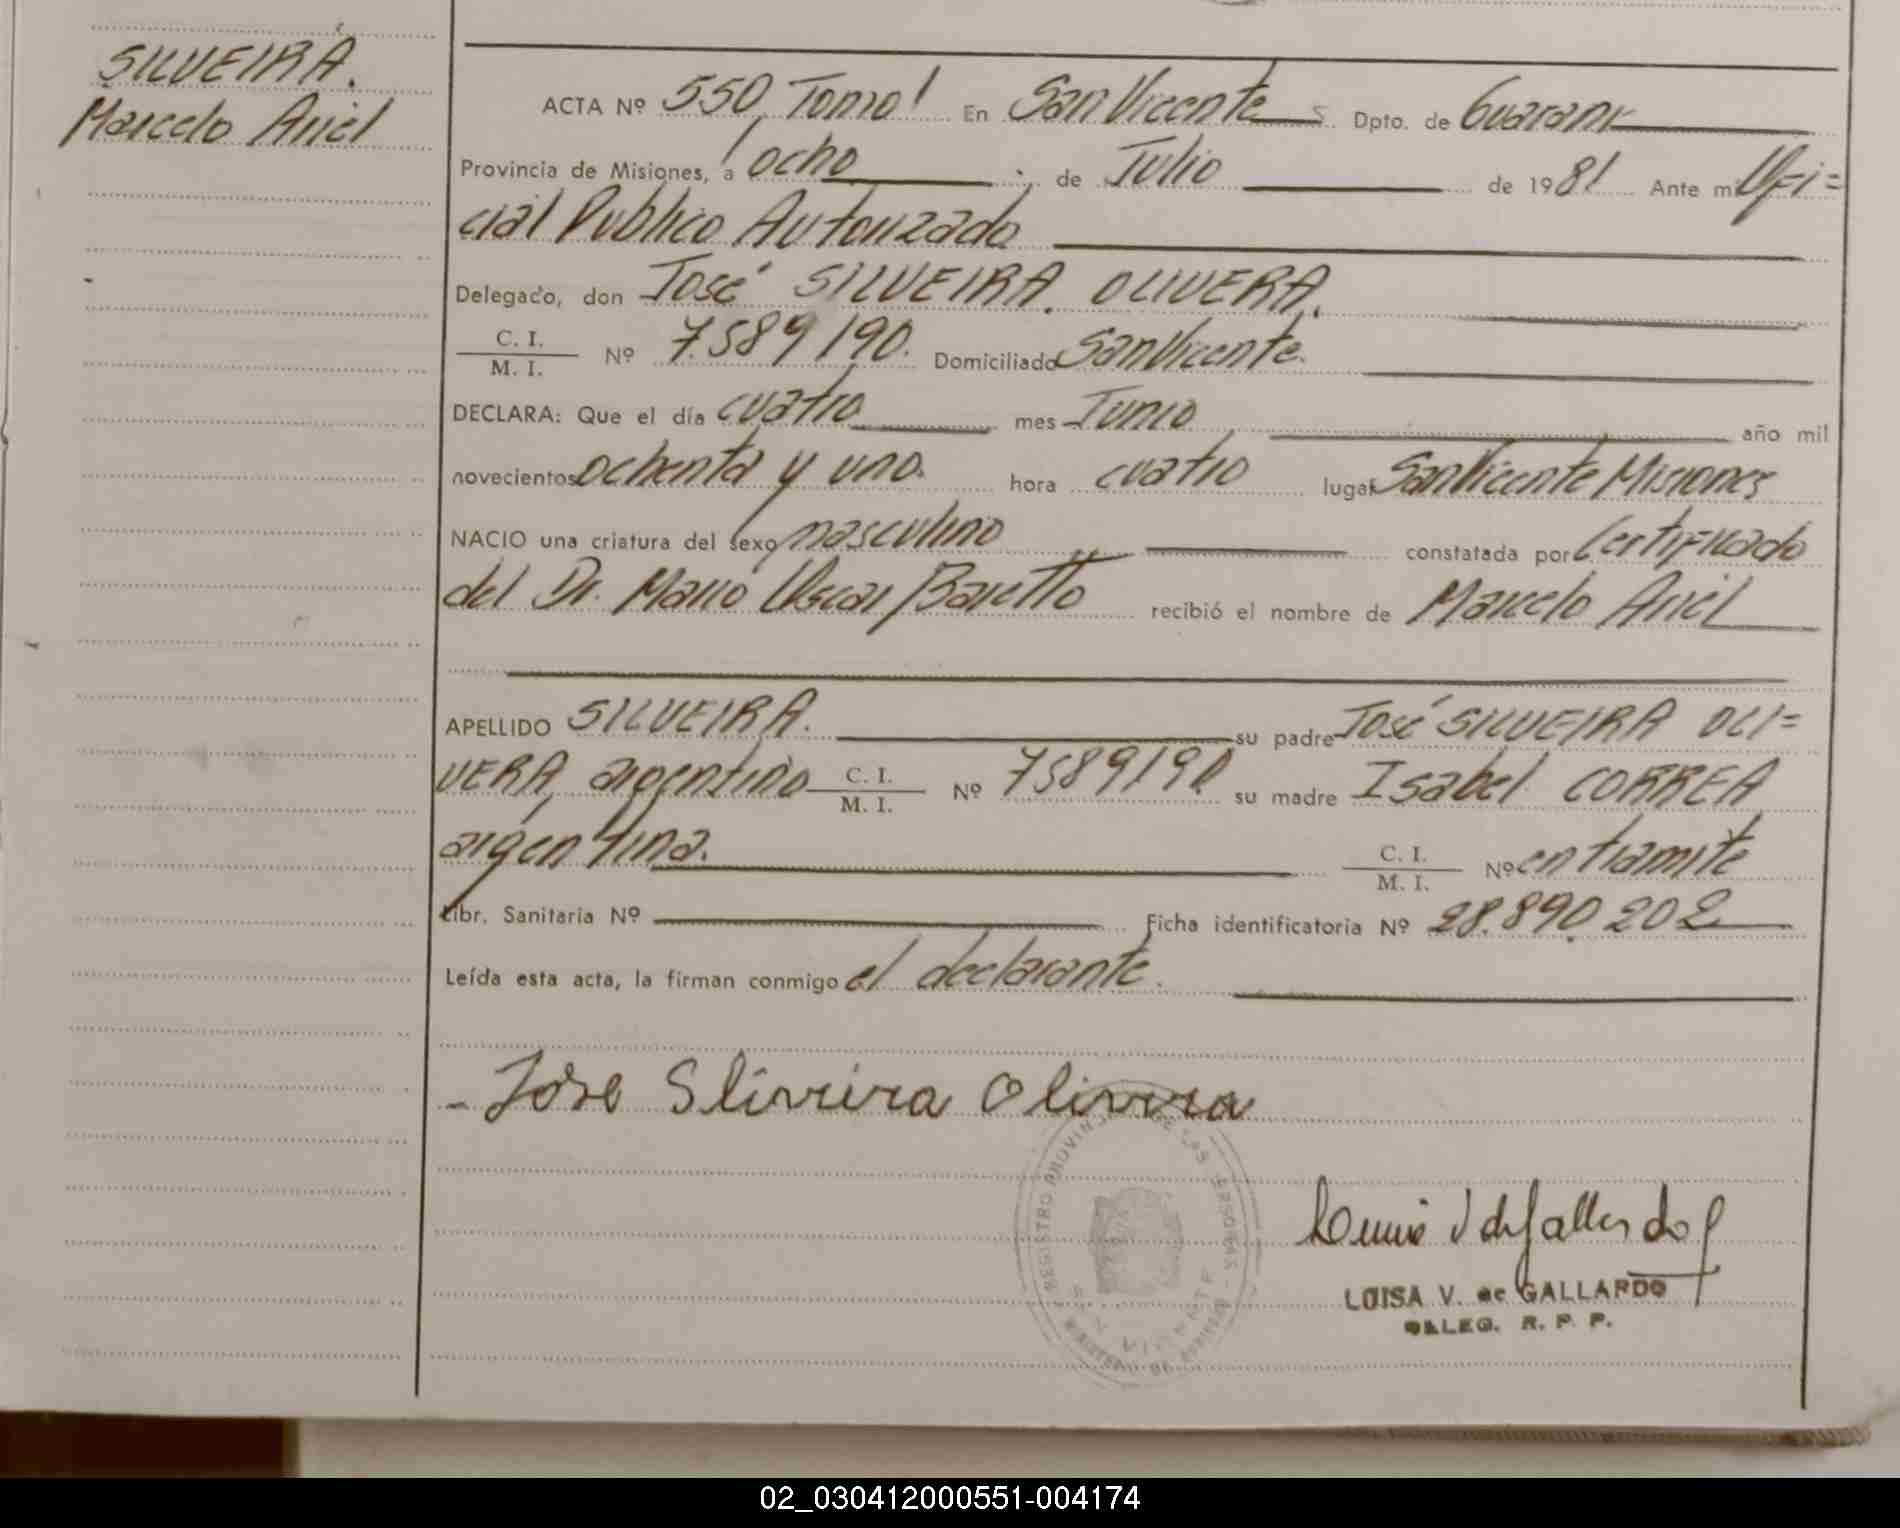 SILVEIRA.
Marcelo Ariel
ACTA Nº 550, Tomo I En San Vicente Dpto. de Guarani
Provincia de Misiones, a ocho de Julio de 1981 Ante mi Ofi=
cial Publico Autorizado
Delegado, don José SILVEIRA. OLIVERA.
C. I. / M. I. Nº 7.589190. Domiciliado San Vicente.
DECLARA: Que el día cuatro mes Junio año mil
novecientos ochenta y uno. hora cuatro lugar San Vicente Misiones
NACIO una criatura del sexo masculino constatada por Certificado
del Dr. Mario Oscar Baretto recibió el nombre de Marcelo Ariel
APELLIDO SILVEIRA. su padre José SILVEIRA OLI=
VERA, argentino C. I. / M. I. Nº 7589190 su madre Isabel CORREA
argentina. C. I. / M. I. Nº en tramite
Libr. Sanitaria Nº Ficha identificatoria Nº 28.890.202
Leída esta acta, la firman conmigo el declarante.
- Jose Sliveira Olivera
REGISTRO PROVINCIAL DE LAS PERSONAS
LUISA V. de GALLARDO
DELEG. R. P. P.
02_030412000551-004174